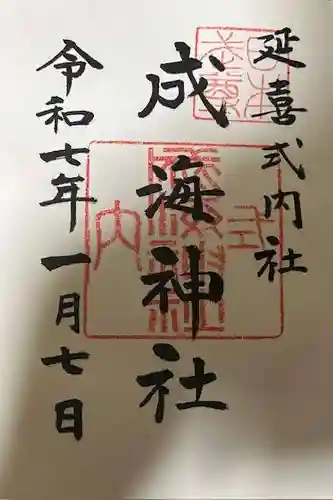 延喜式内社
成海神社
令和七年一月七日
式内